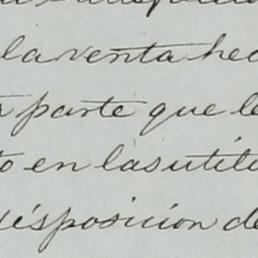 la venta hec
parte que le
to en las utili
disposicion de